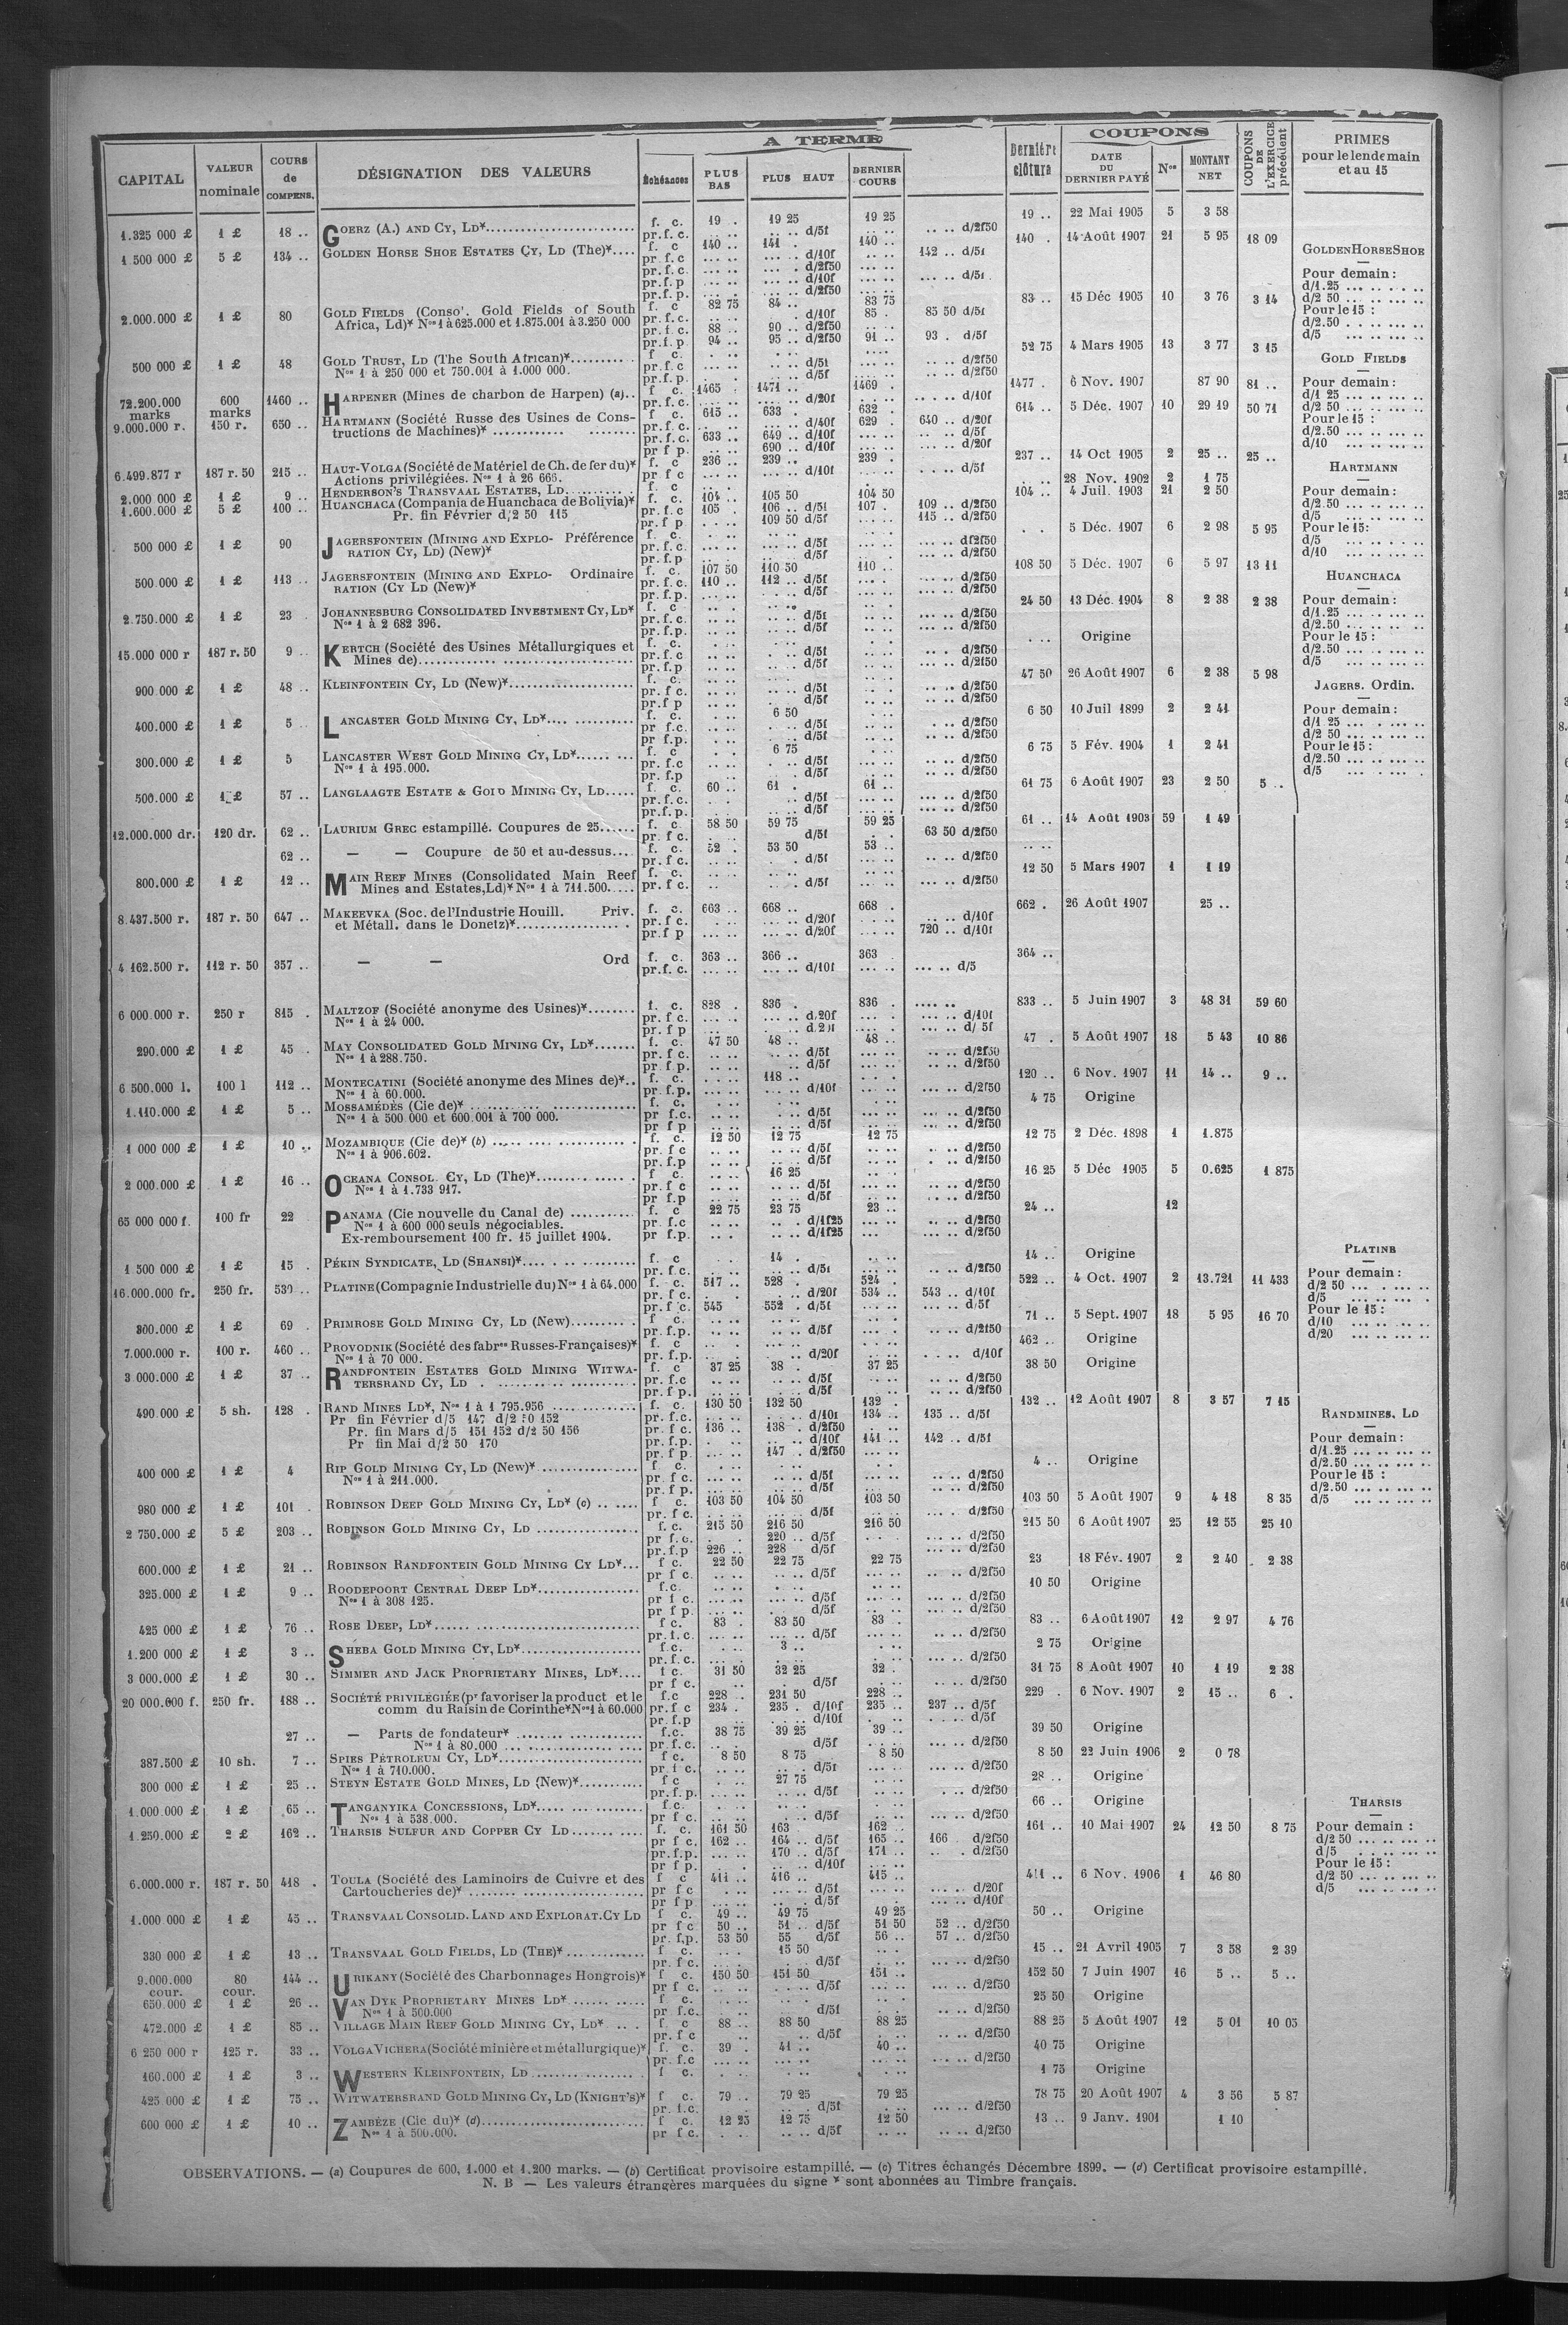 A TERME
COUPONS
CAPITAL | VALEUR nominale | COURS de COMPENS. | DÉSIGNATION DES VALEURS | Échéances | PLUS BAS | PLUS HAUT | DERNIER COURS | Dernière clôture | DATE DU DERNIER PAYÉ | Nos | MONTANT NET | COUPONS DE L'EXERCICE précédent | PRIMES pour le lendemain et au 15
1.325 000 £ 1 £ 18 .. GOERZ (A.) AND CY, LD* f. c. 19 . 19 25 19 25 19 .. 22 Mai 1905 5 3 58
pr.f.c. d/5f d/2f50
1 500 000 £ 5 £ 134 .. GOLDEN HORSE SHOE ESTATES CY, LD (The)* f. c 140 .. 141 . 140 .. 140 . 14 Août 1907 21 5 95 18 09
pr.f.c d/10f 142 .. d/5f
pr.f.c. d/2f50
pr.f.p d/10f d/5f
pr.f.p. d/2f50
2.000.000 £ 1 £ 80 GOLD FIELDS (Conso'. Gold Fields of South f. c 82 75 84 .. 83 75 83 .. 15 Déc 1905 10 3 76 3 14
Africa, Ld)* Nos 1 à 625.000 et 1.875.001 à 3.250 000 pr.f.c. d/10f 85 . 85 50 d/5f
pr.f.c. 88 .. 90 .. d/2f50
pr.f.p 94 .. 95 .. d/2f50 91 .. 93 . d/5f
500 000 £ 1 £ 48 GOLD TRUST, LD (The South African)* f c. 52 75 4 Mars 1905 13 3 77 3 15
Nos 1 à 250 000 et 750.001 à 1.000 000. pr.f.c d/5f d/2f50
pr.f.p. d/5f d/2f50
72.200.000 marks 600 marks 1460 .. HARPENER (Mines de charbon de Harpen) (a).. f. c. 1465 . 1471 .. 1469 . 1477 . 6 Nov. 1907 87 90 81 ..
pr.f.c. d/20f d/10f
9.000.000 r. 150 r. 650 .. HARTMANN (Société Russe des Usines de Cons- f c. 615 .. 633 . 632 614 .. 5 Déc. 1907 10 29 19 50 71
tructions de Machines)* pr.f.c. d/40f 629 . 640 .. d/20f
pr.f.c. 633 .. 649 .. d/10f d/5f
pr f p. 690 .. d/10f d/20f
6.499.877 r 187 r. 50 215 .. HAUT-VOLGA (Société de Matériel de Ch. de fer du)* f. c 236 .. 239 .. 239 . 237 .. 14 Oct 1905 2 25 .. 25 ..
Actions privilégiées. Nos 1 à 26 666. pr f c d/10f d/5f
2.000 000 £ 1 £ 9 .. HENDERSON'S TRANSVAAL ESTATES, LD f. c 28 Nov. 1902 2 1 75
1.600.000 £ 5 £ 100 .. HUANCHACA (Compania de Huanchaca de Bolivia)* f. c. 104 .. 105 50 104 50 104 .. 4 Juil. 1903 21 2 50
Pr. fin Février d/2 50 115 pr.f.c 105 . 106 .. d/5f 107 . 109 .. d/2f50
pr.f p 109 50 d/5f 115 .. d/2f50
500 000 £ 1 £ 90 JAGERSFONTEIN (MINING AND EXPLO- Préférence f. c. 5 Déc. 1907 6 2 98 5 95
RATION CY, LD) (New)* pr.f.c. d/5f d/2f50
pr.f.p d/5f d/2f50
500.000 £ 1 £ 113 .. JAGERSFONTEIN (MINING AND EXPLO- Ordinaire f. c. 107 50 110 50 110 .. 108 50 5 Déc. 1907 6 5 97 13 11
RATION (CY LD (New)* pr.f.c. 110 .. 112 .. d/5f d/2f50
pr.f.p. d/5f d/2f50
2.750.000 £ 1 £ 23 . JOHANNESBURG CONSOLIDATED INVESTMENT CY, LD* f. c 24 50 13 Déc. 1904 8 2 38 2 38
Nos 1 à 2 682 396. pr.f.c. d/5f d/2f50
pr.f.p. d/5f d/2f50
15.000 000 r 187 r. 50 9 .. KERTCH (Société des Usines Métallurgiques et f. c. Origine
Mines de) pr.f.c d/5f d/2f50
pr.f.p d/5f d/2f50
900 000 £ 1 £ 48 .. KLEINFONTEIN CY, LD (New)* f. c. 47 50 26 Août 1907 6 2 38 5 98
pr.f c. d/5f d/2f50
pr.f p d/5f d/2f50
400.000 £ 1 £ 5 . LANCASTER GOLD MINING CY, LD* f. c. 6 50 6 50 10 Juil 1899 2 2 41
pr f.c. d/5f d/2f50
pr f.p. d/5f d/2f50
300.000 £ 1 £ 5 LANCASTER WEST GOLD MINING CY, LD* f. c 6 75 6 75 5 Fév. 1904 1 2 41
Nos 1 à 195.000. pr.f.c d/5f d/2f50
pr.f.p d/5f d/2f50
500.000 £ 1 £ 57 .. LANGLAAGTE ESTATE & GOLD MINING CY, LD f. c. 60 .. 61 . 61 .. 61 75 6 Août 1907 23 2 50 5 ..
pr.f.c. d/5f d/2f50
pr.f.p. d/5f d/2f50
12.000.000 dr. 120 dr. 62 .. LAURIUM GREC estampillé. Coupures de 25 f. c. 58 50 59 75 59 25 61 .. 14 Août 1903 59 1 49
pr. f c. d/5f 63 50 d/2f50
62 .. — — Coupure de 50 et au-dessus f. c. 52 . 53 50 53 ..
pr.f c. d/5f d/2f50
800.000 £ 1 £ 12 .. MAIN REEF MINES (Consolidated Main Reef f. c. 12 50 5 Mars 1907 1 1 19
Mines and Estates, Ld)* Nos 1 à 711.500. pr.f c. d/5f d/2f50
8.437.500 r. 187 r. 50 647 .. MAKEEVKA (Soc. de l'Industrie Houill. Priv. f. c. 663 .. 668 .. 668 . 662 . 26 Août 1907 25 ..
et Métall. dans le Donetz)* pr.f c. d/20f d/10f
pr.f p d/20f 720 .. d/10f
4 162.500 r. 112 r. 50 357 .. — — Ord f. c. 363 .. 366 .. 363 . 364 ..
pr.f. c. d/10f d/5
6 000.000 r. 250 r 815 . MALTZOF (Société anonyme des Usines)* f. c. 828 . 836 . 836 . 833 .. 5 Juin 1907 3 48 31 59 60
Nos 1 à 24 000. pr.f c. d/20f d/10f
pr f p d/5f
290.000 £ 1 £ 45 . MAY CONSOLIDATED GOLD MINING CY, LD* f. c. 47 50 48 .. 48 .. 47 . 5 Août 1907 18 5 43 10 86
Nos 1 à 288.750. pr.f c. d/5f d/2f50
pr f p. d/5f d/2f50
6 500.000 l. 100 l 112 .. MONTECATINI (Société anonyme des Mines de)* f. c. 118 .. 120 .. 6 Nov. 1907 11 14 .. 9 ..
Nos 1 à 60.000. pr.f.p. d/10f d/2f50
1.110.000 £ 1 £ 5 .. MOSSAMÉDÈS (Cie de)* f. c. 4 75 Origine
Nos 1 à 500 000 et 600.001 à 700 000. pr f.c. d/5f d/2f50
pr f p d/5f d/2f50
1 000 000 £ 1 £ 10 .. MOZAMBIQUE (Cie de)* (b) f. c. 12 50 12 75 12 75 12 75 2 Déc. 1898 1 1.875
Nos 1 à 906.602. pr.f c d/5f d/2f50
pr.f.p d/5f d/2f50
2 000.000 £ 1 £ 16 .. OCEANA CONSOL. CY, LD (The)* f c. 16 25 16 25 5 Déc 1905 5 0.625 1 875
Nos 1 à 1.733 917. pr.f c d/5f d/2f50
pr f.p d/5f d/2f50
65 000 000 f. 100 fr 22 PANAMA (Cie nouvelle du Canal de) f. c 22 75 23 75 23 .. 24 .. 12
Nos 1 à 600 000 seuls négociables. pr. f.c d/1f25 d/2f50
Ex-remboursement 100 fr. 15 juillet 1904. pr f.p. d/1f25 d/2f50
1 500 000 £ 1 £ 15 . PÉKIN SYNDICATE, LD (SHANSI)* f. c 14 . 14 .. Origine
pr.f c. d/5f d/2f50
16.000.000 fr. 250 fr. 530 .. PLATINE (Compagnie Industrielle du) Nos 1 à 64.000 f. c. 517 .. 528 . 524 . 522 .. 4 Oct. 1907 2 13.721 11 433
pr.f c. d/20f 534 .. 543 .. d/10f
pr.f c. 545 552 . d/5f d/5f
300.000 £ 1 £ 69 . PRIMROSE GOLD MINING CY, LD (New) f c. 71 .. 5 Sept. 1907 18 5 95 16 70
pr. f.p. d/5f d/2f50
7.000.000 r. 100 r. 460 .. PROVODNIK (Société des fabres Russes-Françaises)* f. c 462 .. Origine
Nos 1 à 70 000. pr.f.p. d/20f d/10f
3 000.000 £ 1 £ 37 .. RANDFONTEIN ESTATES GOLD MINING WITWA- f. c 37 25 38 . 37 25 38 50 Origine
TERSRAND CY, LD pr.f.c d/5f d/2f50
pr.f p. d/5f d/2f50
490.000 £ 5 sh. 128 . RAND MINES LD*, Nos 1 à 1 795.956 f. c. 130 50 132 50 132 . 132 .. 12 Août 1907 8 3 57 7 15
Pr fin Février d/5 147 d/2 50 152 pr.f.c. d/10f 134 .. 135 .. d/5f
Pr. fin Mars d/5 151 152 d/2 50 156 pr.f c. 136 .. 138 .. d/2f50
Pr fin Mai d/2 50 170 pr.f.p. d/10f 141 .. 142 .. d/5f
pr f p. 147 . d/2f50
400 000 £ 1 £ 4 RIP GOLD MINING CY, LD (New)* f c. 4 .. Origine
Nos 1 à 211.000. pr.f c. d/5f d/2f50
pr.f p. d/5f d/2f50
980 000 £ 1 £ 101 . ROBINSON DEEP GOLD MINING CY, LD* (c) f c. 103 50 104 50 103 50 103 50 5 Août 1907 9 4 18 8 35
pr. f c. d/5f d/2f50
2 750.000 £ 5 £ 203 .. ROBINSON GOLD MINING CY, LD f. c. 215 50 216 50 216 50 215 50 6 Août 1907 25 12 55 25 10
pr f.c. 220 .. d/5f d/2f50
pr.f.p 226 .. 228 d/5f d/2f50
600.000 £ 1 £ 21 .. ROBINSON RANDFONTEIN GOLD MINING CY LD* f c. 22 50 22 75 22 75 23 18 Fév. 1907 2 2 40 2 38
pr f c. d/5f d/2f50
325.000 £ 1 £ 9 .. ROODEPOORT CENTRAL DEEP LD* f.c. 10 50 Origine
Nos 1 à 308 125. pr f c. d/5f d/2f50
pr f p. d/5f d/2f50
425 000 £ 1 £ 76 .. ROSE DEEP, LD* f c. 83 . 83 50 83 . 83 .. 6 Août 1907 12 2 97 4 76
pr.f.c. d/5f d/2f50
1.200 000 £ 1 £ 3 .. SHEBA GOLD MINING CY, LD* f.c. 3 .. 2 75 Origine
pr.f.c. d/2f50
3 000.000 £ 1 £ 30 .. SIMMER AND JACK PROPRIETARY MINES, LD* f c. 31 50 32 25 32 . 31 75 8 Août 1907 10 1 19 2 38
pr f c. d/5f d/2f50
20 000.000 f. 250 fr. 188 .. SOCIÉTÉ PRIVILÉGIÉE (pr favoriser la product et le f.c 228 .. 231 50 228 .. 229 . 6 Nov. 1907 2 15 .. 6 .
comm du Raisin de Corinthe* Nos 1 à 60.000 pr.f c 234 . 235 . d/10f 235 .. 237 .. d/5f
pr.f.p d/10f d/5f
27 .. — Parts de fondateur* f.c. 38 75 39 25 39 .. 39 50 Origine
Nos 1 à 80.000 pr.f.c. d/5f d/2f50
387.500 £ 10 sh. 7 .. SPIES PÉTROLEUM CY, LD* f c. 8 50 8 75 8 50 8 50 22 Juin 1906 2 0 78
Nos 1 à 710.000. pr.f c. d/5f d/2f50
300 000 £ 1 £ 25 .. STEYN ESTATE GOLD MINES, LD (New)* f c 27 75 28 .. Origine
pr.f.p. d/5f d/2f50
1.000.000 £ 1 £ 65 .. TANGANYIKA CONCESSIONS, LD* f.c. 66 .. Origine
Nos 1 à 538.000. pr f c. d/5f d/2f50
1.250.000 £ 2 £ 162 .. THARSIS SULFUR AND COPPER CY LD f. c. 161 50 163 162 .. 161 .. 10 Mai 1907 24 12 50 8 75
pr f c. 162 .. 164 .. d/5f 165 .. 166 . d/2f50
pr.f.p. 170 .. d/5f 171 .. d/2f50
pr f p. d/10f
6.000.000 r. 187 r. 50 418 . TOULA (Société des Laminoirs de Cuivre et des f c 411 .. 416 .. 415 .. 411 .. 6 Nov. 1906 1 46 80
Cartoucheries de)* pr f c d/5f d/20f
pr f p d/5f d/10f
1.000 000 £ 1 £ 45 .. TRANSVAAL CONSOLID. LAND AND EXPLORAT. CY LD f c. 49 .. 49 75 49 25 50 .. Origine
pr f c 50 .. 51 .. d/5f 51 50 52 .. d/2f50
pr. f.p. 53 50 55 d/5f 56 .. 57 .. d/2f50
330 000 £ 1 £ 13 .. TRANSVAAL GOLD FIELDS, LD (THE)* f c. 15 50 15 .. 21 Avril 1905 7 3 58 2 39
pr. f c. d/5f d/2f50
9.000.000 cour. 80 cour. 144 .. URIKANY (Société des Charbonnages Hongrois)* f c. 150 50 151 50 151 .. 152 50 7 Juin 1907 16 5 .. 5 ..
pr f c. d/5f d/2f50
650.000 £ 1 £ 26 .. VAN DYK PROPRIETARY MINES LD* f c. 25 50 Origine
Nos 1 à 500.000 pr f.c. d/5f d/2f50
472.000 £ 1 £ 85 .. VILLAGE MAIN REEF GOLD MINING CY, LD* f. c 88 .. 88 50 88 25 88 25 5 Août 1907 12 5 01 10 03
pr.f c d/5f d/2f50
6 250 000 r 125 r. 33 .. VOLGA VICHERA (Société minière et métallurgique)* f. c. 39 . 41 .. 40 .. 40 75 Origine
pr. f.c d/2f50
160.000 £ 1 £ 3 .. WESTERN KLEINFONTEIN, LD f c. 1 75 Origine
425 000 £ 1 £ 75 .. WITWATERSRAND GOLD MINING CY, LD (KNIGHT'S)* f c. 79 .. 79 25 79 25 78 75 20 Août 1907 4 3 56 5 87
pr. f.c. d/5f d/2f50
600 000 £ 1 £ 10 .. ZAMBÈZE (Cie du)* (d) f c. 12 25 12 75 12 50 13 .. 9 Janv. 1901 1 10
Nos 1 à 500.000. pr f c. d/5f d/2f50
GOLDEN HORSE SHOE
Pour demain :
d/1.25
d/2 50
Pour le 15 :
d/2.50
d/5
GOLD FIELDS
Pour demain :
d/1 25
d/2 50
Pour le 15 :
d/2.50
d/10
HARTMANN
Pour demain :
d/2.50
d/5
Pour le 15:
d/5
d/10
HUANCHACA
Pour demain :
d/1.25
d/2.50
Pour le 15 :
d/2.50
d/5
JAGERS. Ordin.
Pour demain :
d/1 25
d/2 50
Pour le 15 :
d/2.50
d/5
PLATINE
Pour demain :
d/2 50
d/5
Pour le 15 :
d/10
d/20
RANDMINES, LD
Pour demain :
d/1.25
d/2.50
Pour le 15 :
d/2.50
d/5
THARSIS
Pour demain :
d/2 50
d/5
Pour le 15 :
d/2 50
d/5
OBSERVATIONS. — (a) Coupures de 600, 1.000 et 1.200 marks. — (b) Certificat provisoire estampillé. — (c) Titres échangés Décembre 1899. — (d) Certificat provisoire estampillé.
N. B — Les valeurs étrangères marquées du signe * sont abonnées au Timbre français.